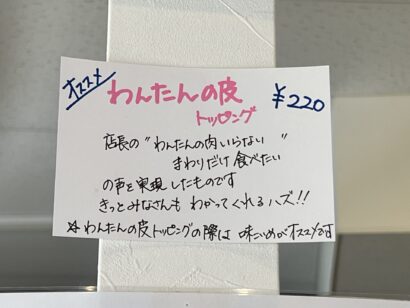 オススメ
わんたんの皮
トッピング
¥220
店長の〝わんたんの肉いらない〟
まわりだけ食べたい
の声を実現したものです
きっとみなさんも わかってくれるハズ!!
☆わんたんの皮トッピングの際は 味こいめがオススメです